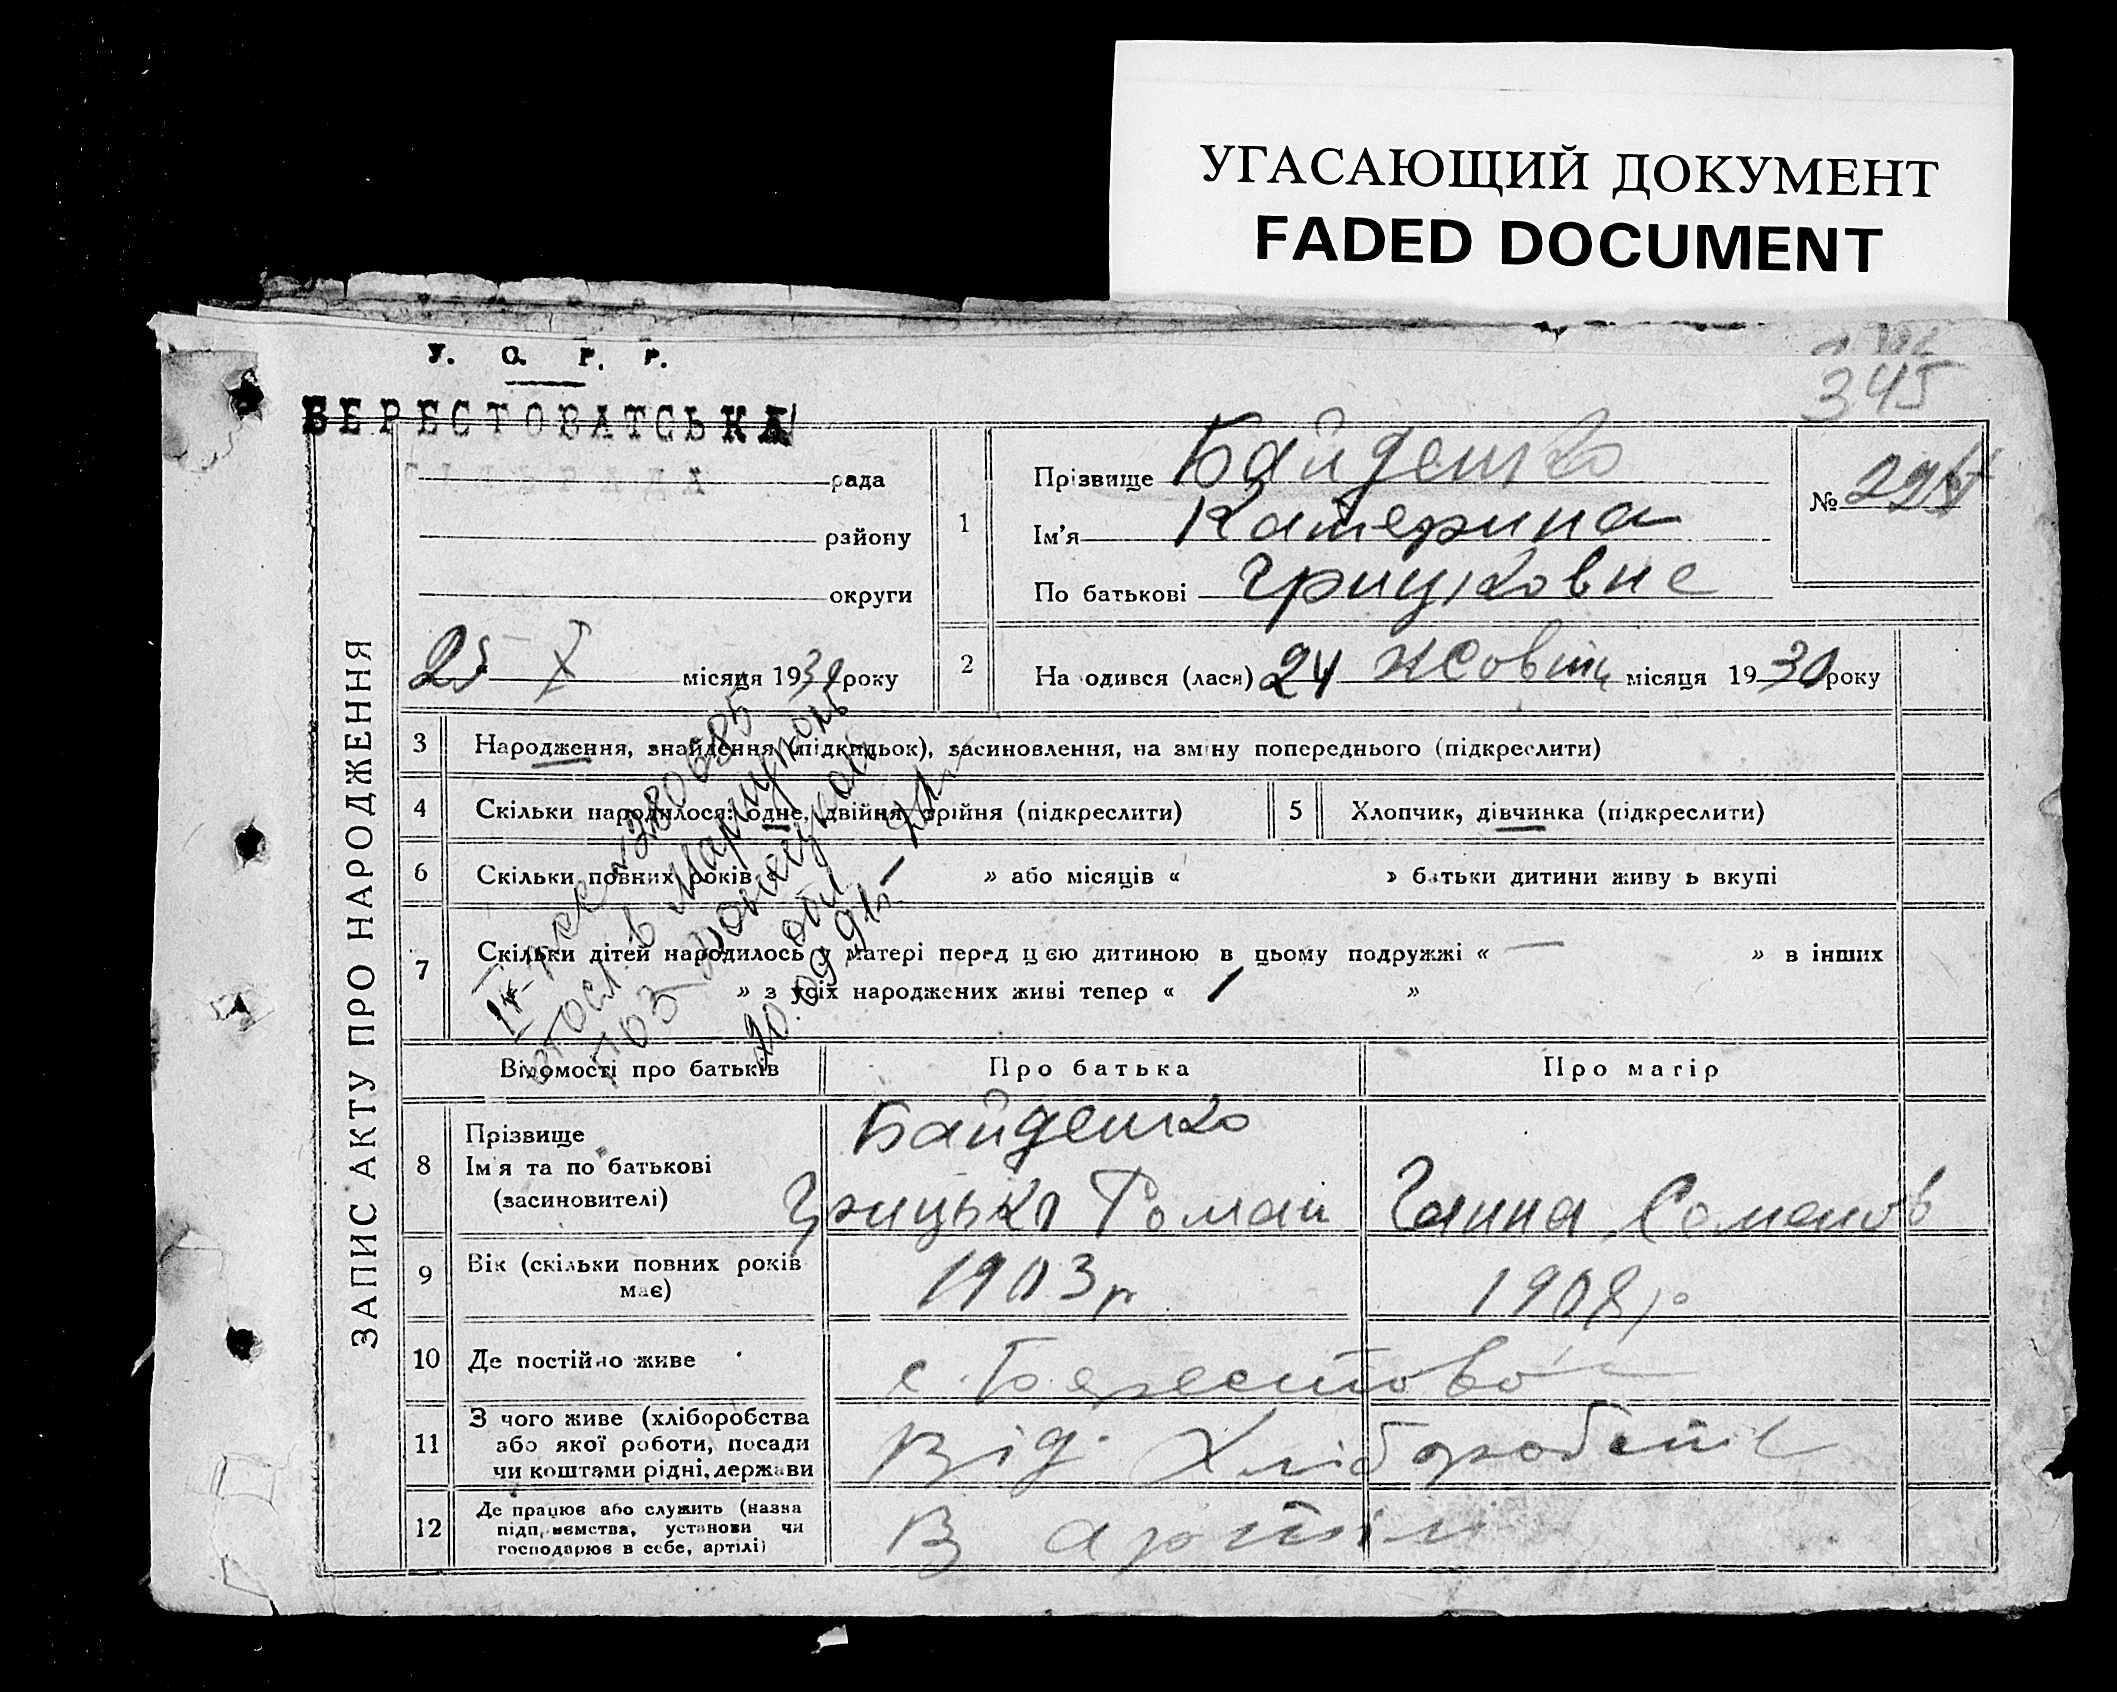 УГАСАЮЩИЙ ДОКУМЕНТ
FADED DOCUMENT
У. С. Р. Р.
345
БЕРЕСТОВАТСЬКА
СІЛЬРАДА
рада
району
округи
25 X місяця 1930 року
1
Прізвище Байденко
Ім'я Катерина
По батькові Грицковна
№
2
Народився (лася) 24 жовтн місяця 1930 року
ЗАПИС АКТУ ПРО НАРОДЖЕННЯ
3 Народження, знайдення, (підкидьок), засиновлення, на зміну попереднього (підкреслити)
4 Скільки народилося: одне, двійня, трійня (підкреслити)
5 Хлопчик, дівчинка (підкреслити)
6 Скільки повних років » або місяців « » батьки дитини живуть вкупі
7 Скільки дітей народилось у матері перед цією дитиною в цьому подружжі « — » в інших
» з усіх народжених живі тепер « 1 »
280685
в Мариуполь
20.09.91
Відомості про батьків
Про батька
Про матір
8 Прізвище
Ім'я та по батькові
(засиновителі)
Байденко
Грицько Роман
Ганна Семенов
9 Вік (скільки повних років
має)
1903 р
1908 р
10 Де постійно живе
с. Берестово
11 З чого живе (хліборобства
або якої роботи, посади
чи коштами рідні, держави
Від Хлібороб
12 Де працює або служить (назва
підприємства, установи чи
господарює в себе, артілі)
В артіли